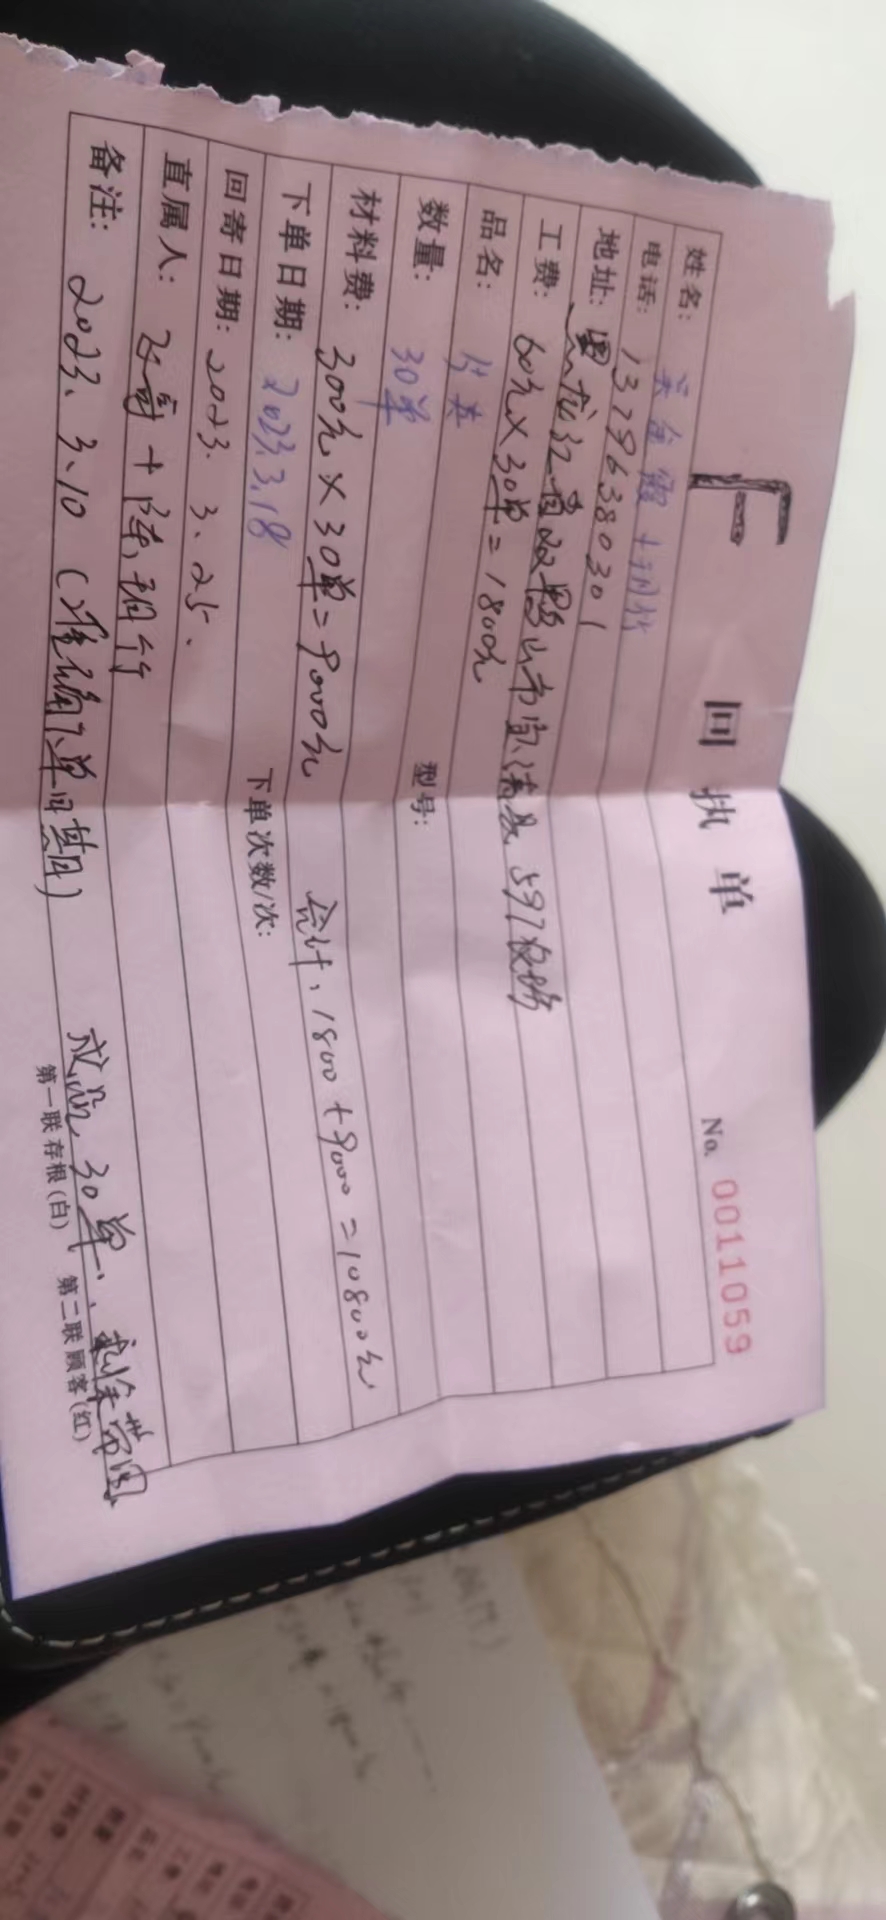 回执单 No. 0011059
姓名:
电话: 13796638030 1
地址: 黑龙江省双鸭山市宝清县 597农场
工费: 60元×30单=1800元
品名:
数量: 30单 型号:
材料费: 300元×30单=9000元 合计: 1800+9000=10800元
下单日期: 2023.3.18 下单次数/次:
回寄日期: 2023. 3. 25.
直属人: 飞哥+陈
备注: 2023. 3. 10 (准确下单日期) 成品 30单.
第一联存根(白) 第二联顾客(红)